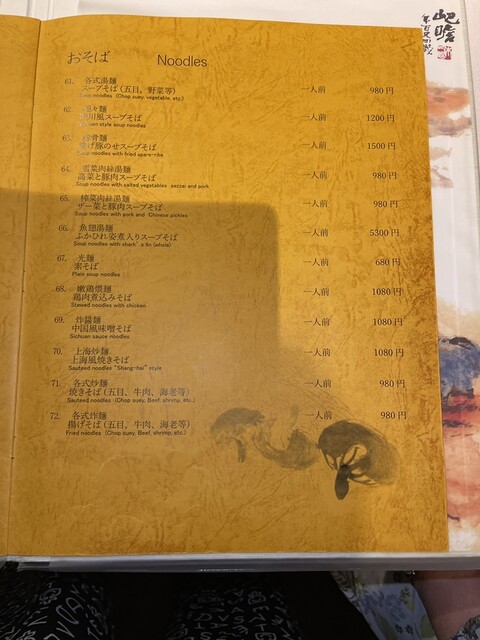 おそば Noodles
61. 各式湯麺
スープそば (五目, 野菜等) 一人前 980円
Soup noodles (Chop suey, vegetable, etc.)
62. 々麺
川風スープそば 一人前 1200円
style soup noodles
63. 骨麺
げ豚のせスープそば 一人前 1500円
Soup noodles with fried spare-ribs
64. 雪菜肉絲湯麺
高菜と豚肉スープそば 一人前 980円
Soup noodles with salted vegetables sezzai and pork
65. 榨菜肉絲湯麺
ザー菜と豚肉スープそば 一人前 980円
Soup noodles with pork and Chinese pickles
66. 魚翅湯麺
ふかひれ姿煮入りスープそば 一人前 5300円
Soup noodles with shark's fin (whole)
67. 光麺
素そば 一人前 680円
Plain soup noodles
68. 嫩鶏煨麺
鶏肉煮込みそば 一人前 1080円
Stewed noodles with chicken
69. 炸醤麺
中国風味噌そば 一人前 1080円
Sichuan sauce noodles
70. 上海炒麺
上海風焼きそば 一人前 1080円
Sauteed noodles "Shang-hai" style
71. 各式炒麺
焼きそば (五目、牛肉、海老等) 一人前 980円
Sauteed noodles (Chop suey, Beef, shrimp, etc.)
72. 各式炸麺
揚げそば (五目、牛肉、海老等) 一人前 980円
Fried noodles (Chop suey, Beef, shrimp, etc.)